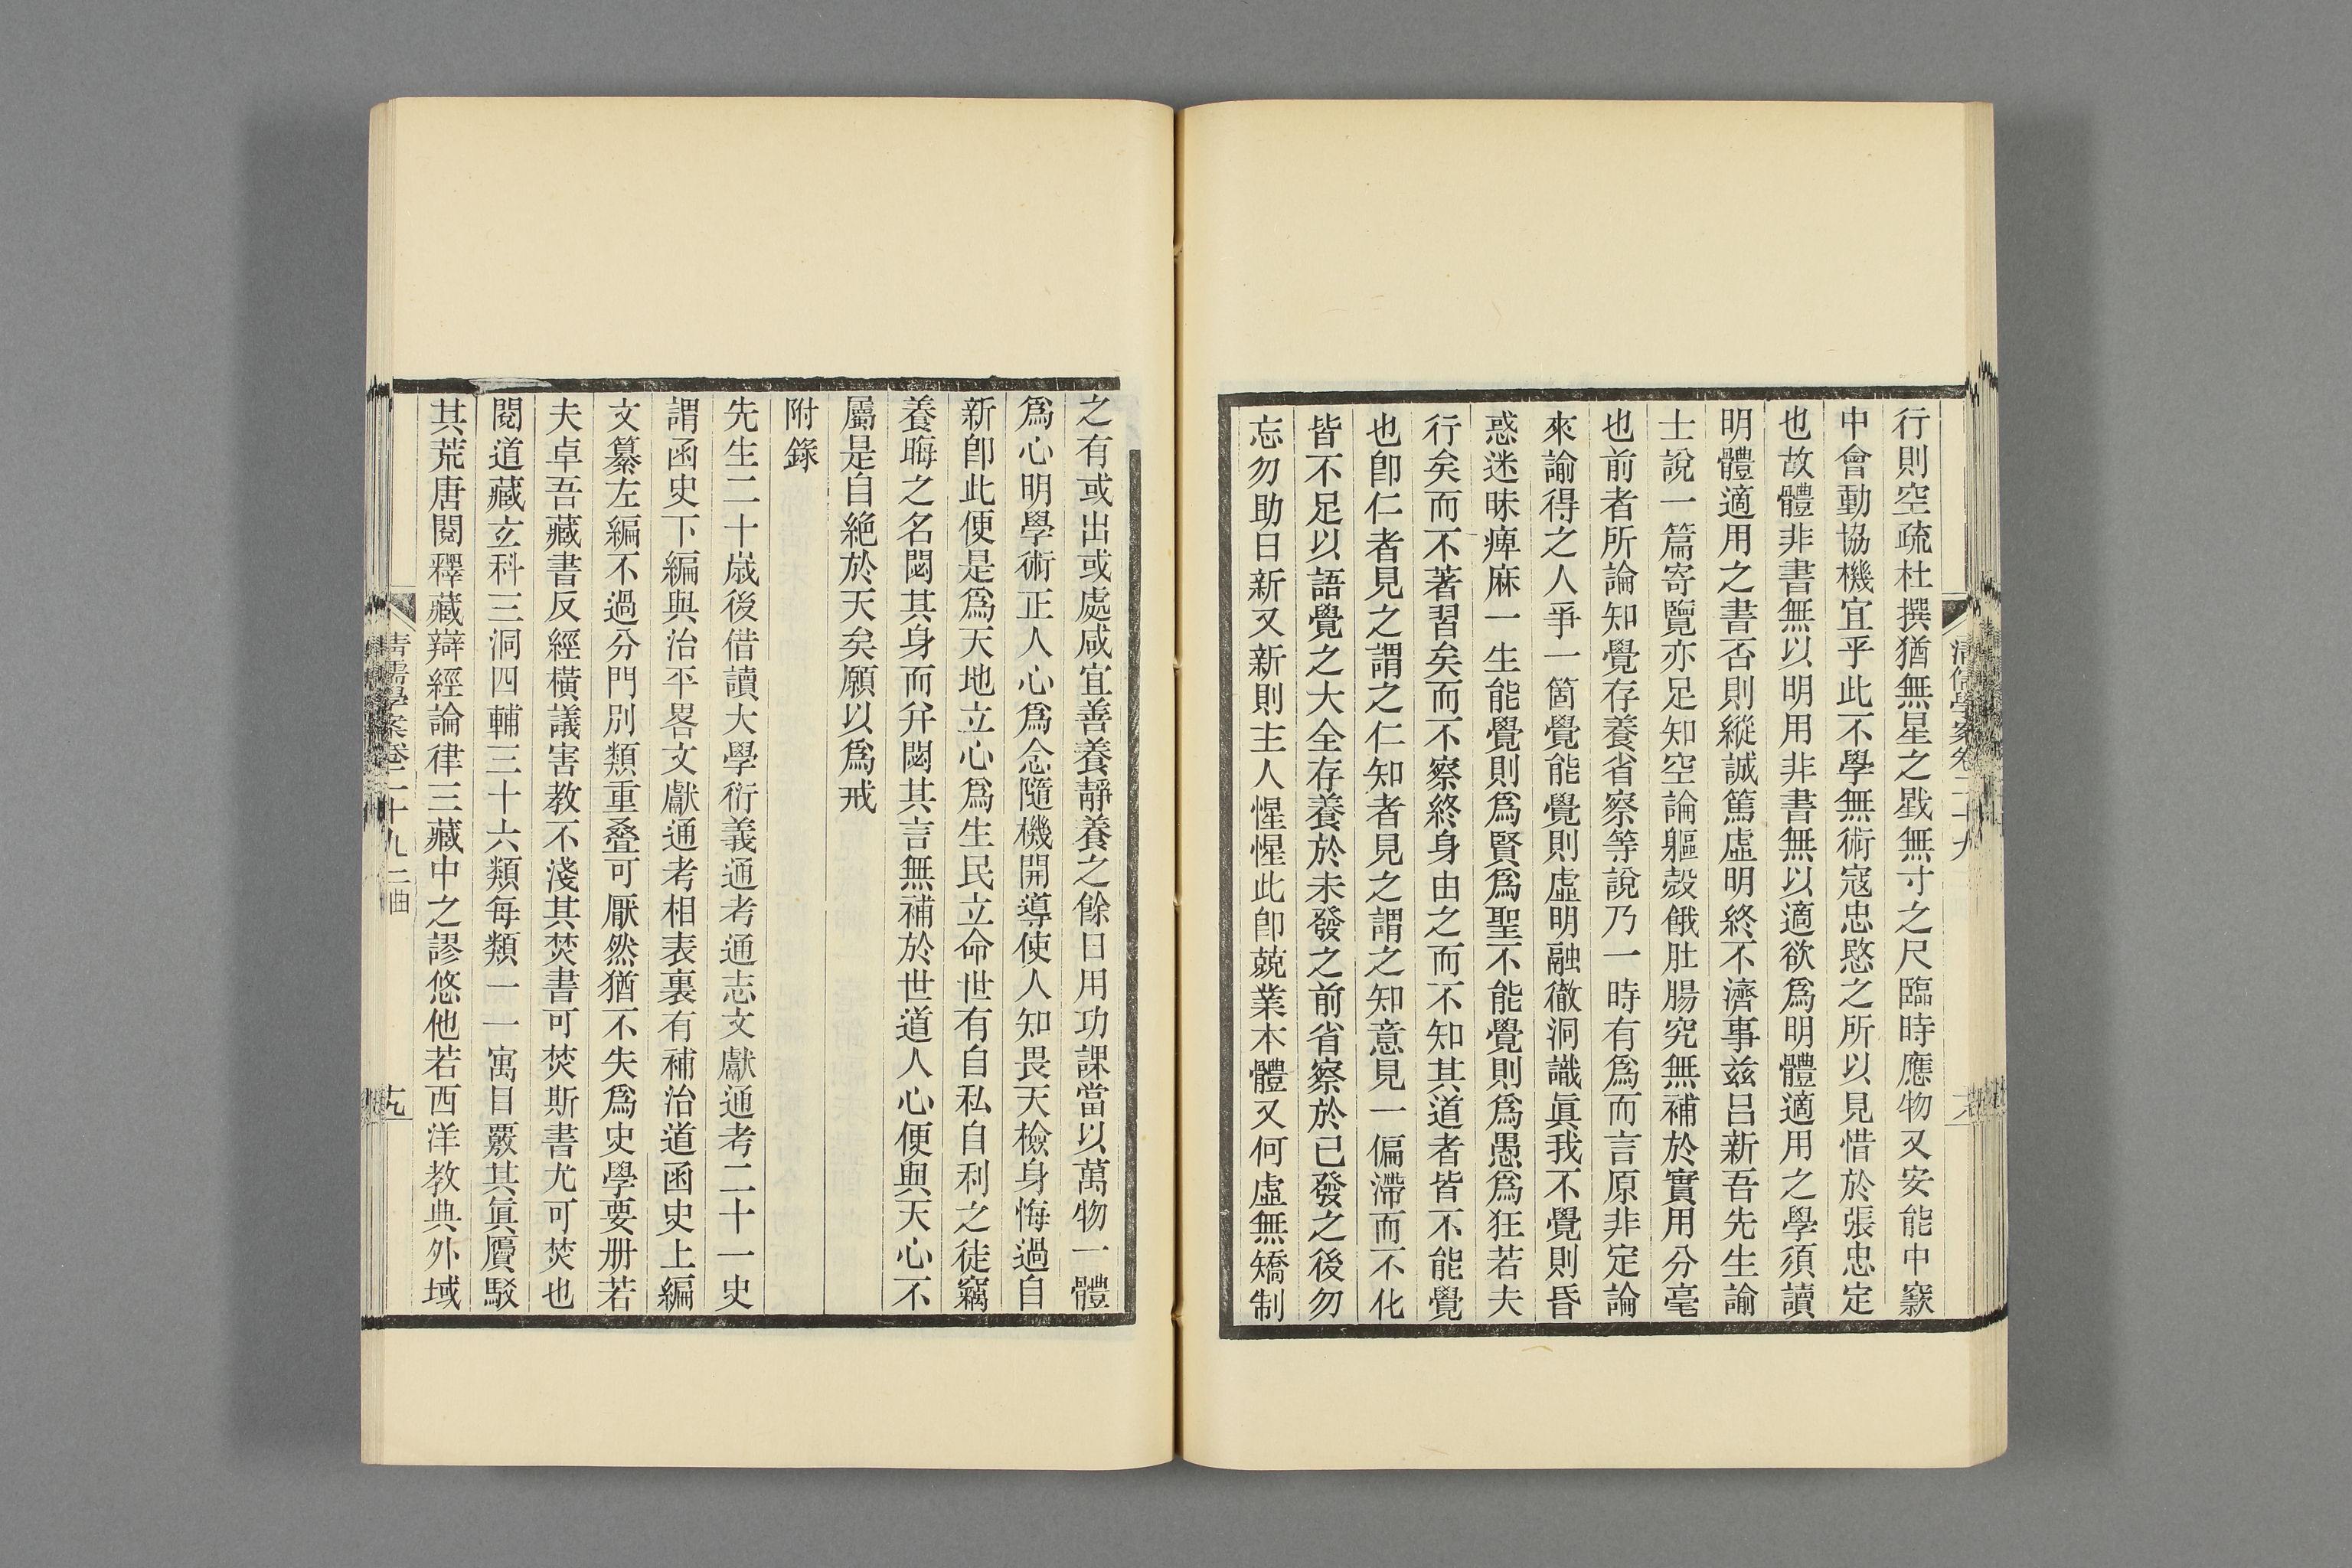 行則空疏杜撰猶無星之戥無寸之尺臨時應物又安能中窾
中會動協機宜乎此不學無術寇忠愍之所以見惜於張忠定
也故體非書無以明用非書無以適欲爲明體適用之學須讀
明體適用之書否則縱誠篤虛明終不濟事兹呂新吾先生諭
士說一篇寄覽亦足知空論軀殼餓肚腸究無補於實用分毫
也前者所論知覺存養省察等說乃一時有爲而言原非定論
來諭得之人爭一箇覺能覺則虛明融徹洞識眞我不覺則昏
惑迷昧痺麻一生能覺則爲賢爲聖不能覺則爲愚爲狂若夫
行矣而不著習矣而不察終身由之而不知其道者皆不能覺
也卽仁者見之謂之仁知者見之謂之知意見一偏滯而不化
皆不足以語覺之大全存養於未發之前省察於已發之後勿
忘勿助日新又新則主人惺惺此卽兢業本體又何虛無矯制
之有或出或處咸宜善養靜養之餘日用功課當以萬物一體
爲心明學術正人心爲念隨機開導使人知畏天檢身悔過自
新卽此便是爲天地立心爲生民立命世有自私自利之徒竊
養晦之名閟其身而幷閟其言無補於世道人心便與天心不
屬是自絶於天矣願以爲戒
附錄
先生二十歲後借讀大學衍義通考通志文獻通考二十一史
謂函史下編與治平畧文獻通考相表裏有補治道函史上編
文纂左編不過分門別類重疊可厭然猶不失爲史學要册若
夫卓吾藏書反經橫議害教不淺其焚書可焚斯書尤可焚也
閱道藏玄科三洞四輔三十六類每類一一寓目覈其眞贋駁
其荒唐閱釋藏辯經論律三藏中之謬悠他若西洋教典外域
清儒學案卷二十九二曲